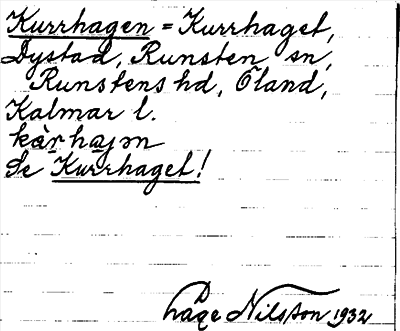 Kurrhagen = Kurrhaget,
Dystad, Runsten sn,
Runstens hd, Öland,
Kalmar l.
kàrhajən
Se Kurrhaget!
Nilsson 1932